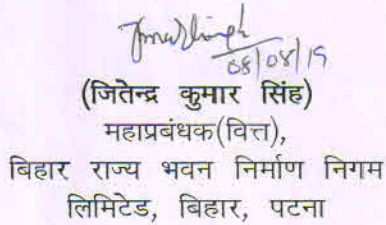 08/08/19
(जितेन्द्र कुमार सिंह)
महाप्रबंधक(वित्त),
बिहार राज्य भवन निर्माण निगम
लिमिटेड, बिहार, पटना